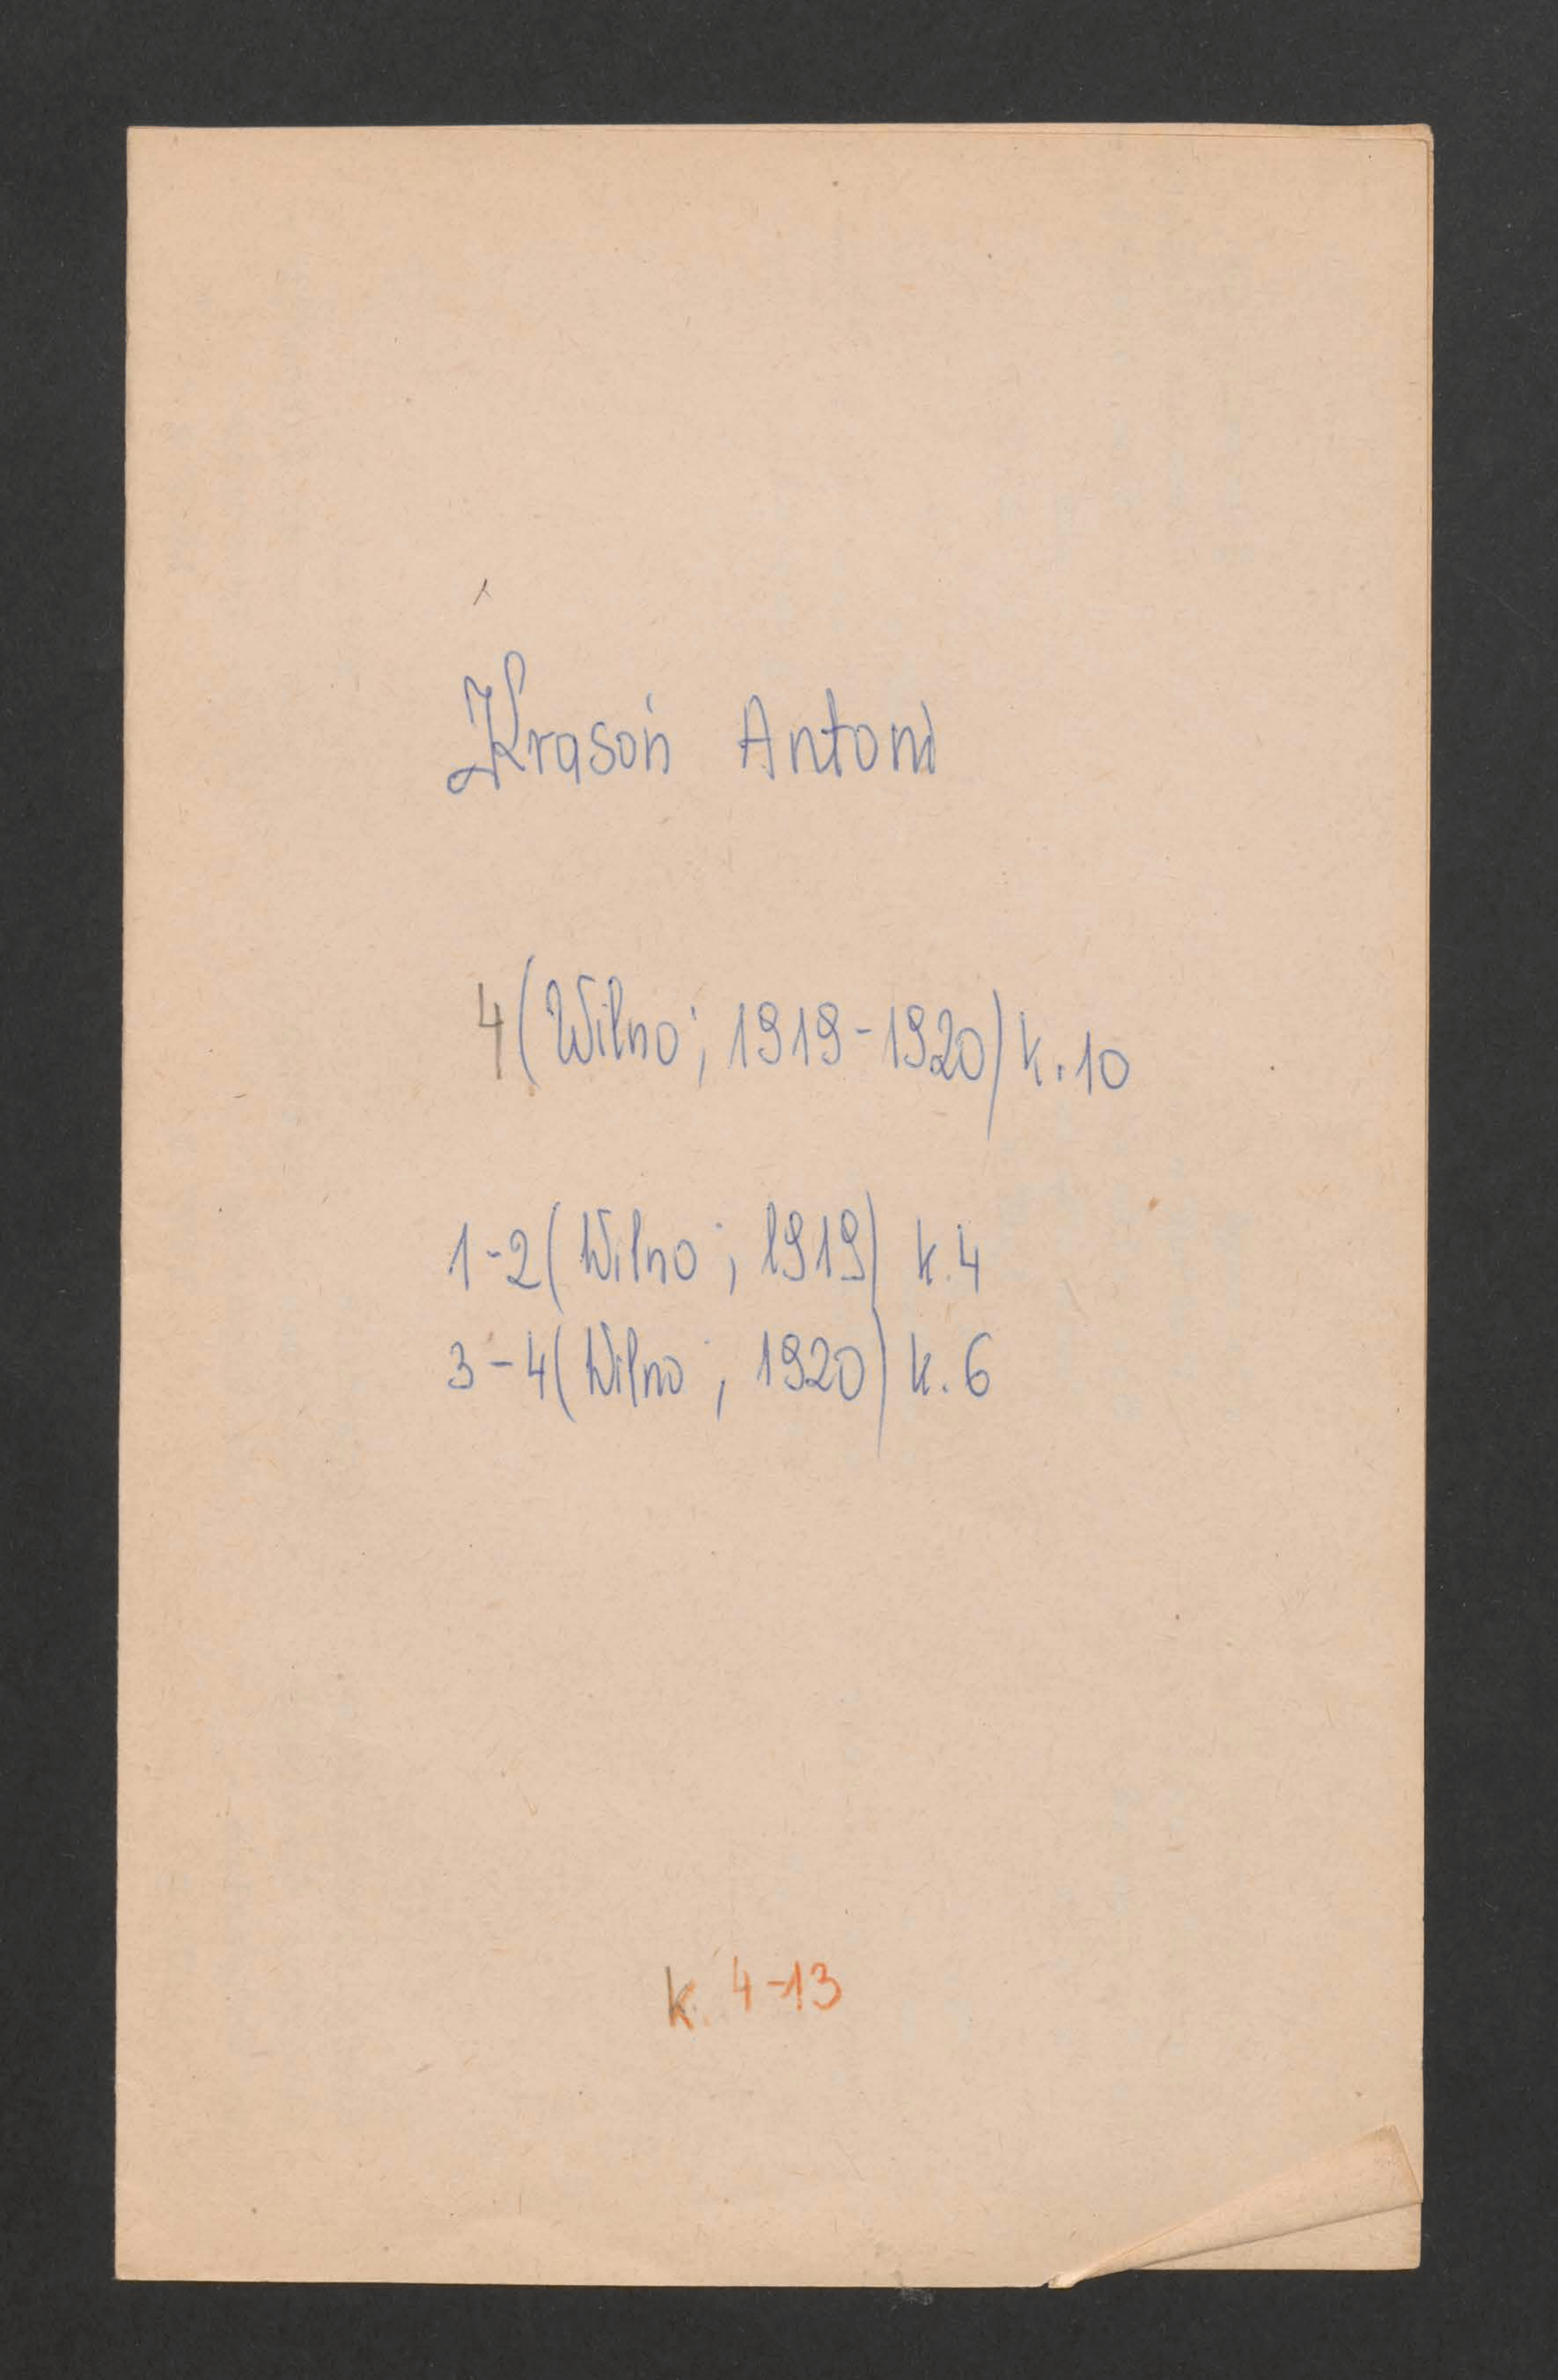 Krasoń Antoni
4 (Wilno; 1919-1920) k. 10
1-2 (Wilno; 1919) k. 4
3-4 (Wilno; 1920) k. 6
k. 4-13